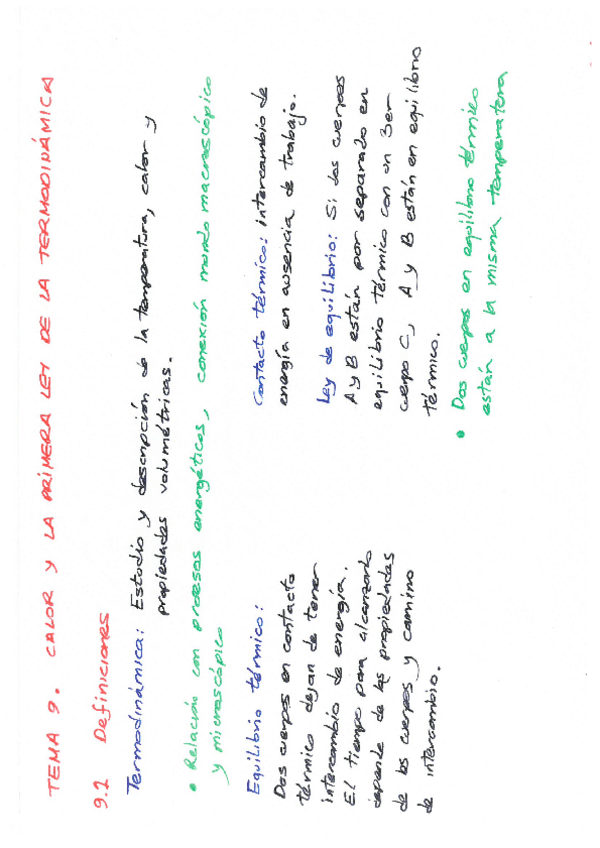 TEMA 9. CALOR Y LA PRIMERA LEY DE LA TERMODINÁMICA
9.1 Definiciones
Termodinámica: Estudio y descripción de la temperatura, calor y
propiedades volumétricas.
• Relación con procesos energéticos, conexión mundo macroscópico
y microscópico
Equilibrio térmico:
Dos cuerpos en contacto
térmico dejan de tener
intercambio de energía.
El tiempo para alcanzarlo
depende de las propiedades
de los cuerpos y camino
de intercambio.
Contacto térmico: intercambio de
energía en ausencia de trabajo.
Ley de equilibrio: Si dos cuerpos
A y B están por separado en
equilibrio térmico con un 3er
cuerpo C, A y B están en equilibrio
térmico.
• Dos cuerpos en equilibrio térmico
están a la misma temperatura